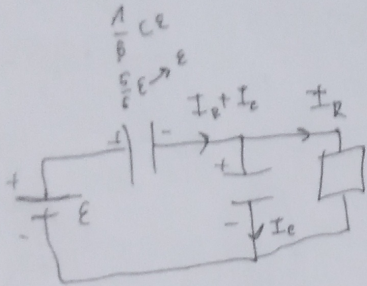 1/6 Cε
5/6 ε → ε
I_R + I_C
I_R
+ -
+
+
ε
-
- I_C